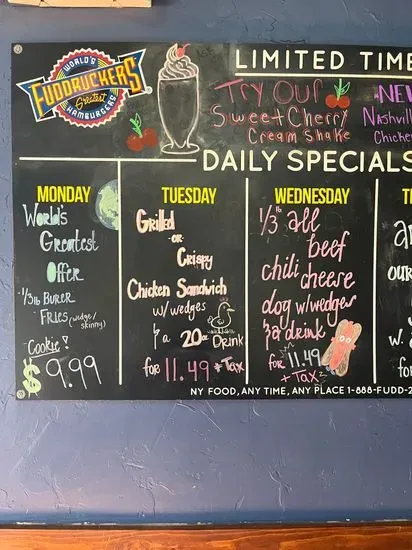 WORLD'S
FUDDRUCKERS
Greatest
HAMBURGERS
LIMITED TIME
Try Our
Sweet Cherry
Cream Shake
NEW
Nashville
Chicken
DAILY SPECIALS
MONDAY
World's
Greatest
Offer
1/3 lb BURER
FRIES (wedge/
skinny)
Cookie!
$9.99
TUESDAY
Grilled
or
Crispy
Chicken Sandwich
w/ wedges
& a 20oz Drink
for 11.49 + Tax
WEDNESDAY
1/3 lb all
beef
chili cheese
dog w/wedges
& a drink
for 11.49
+ TAX
T
OUR
w.
for
NY FOOD, ANY TIME, ANY PLACE 1-888-FUDD-2